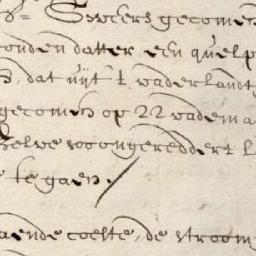 Sweers gecomen
onden datter een quelp
dat uijt t vaderlandt
gecomen op 22 vadem a
selve voongereddert l
te gaen
aende coelte, de stroom